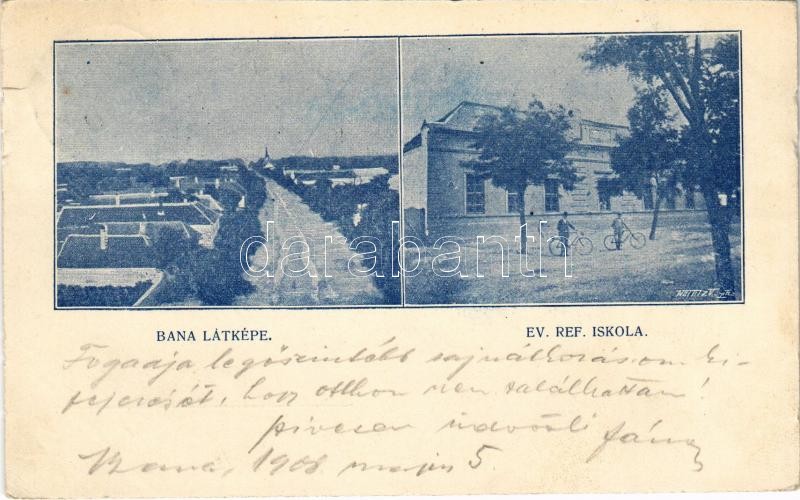 darabanth.com
BANA LÁTKÉPE.
EV. REF. ISKOLA.
Fogadja legőszintébb sajnálkozásom ki-
fejezését, hogy otthon nem találhattam!
szívesen üdvözli János
Bana, 1908 május 5.